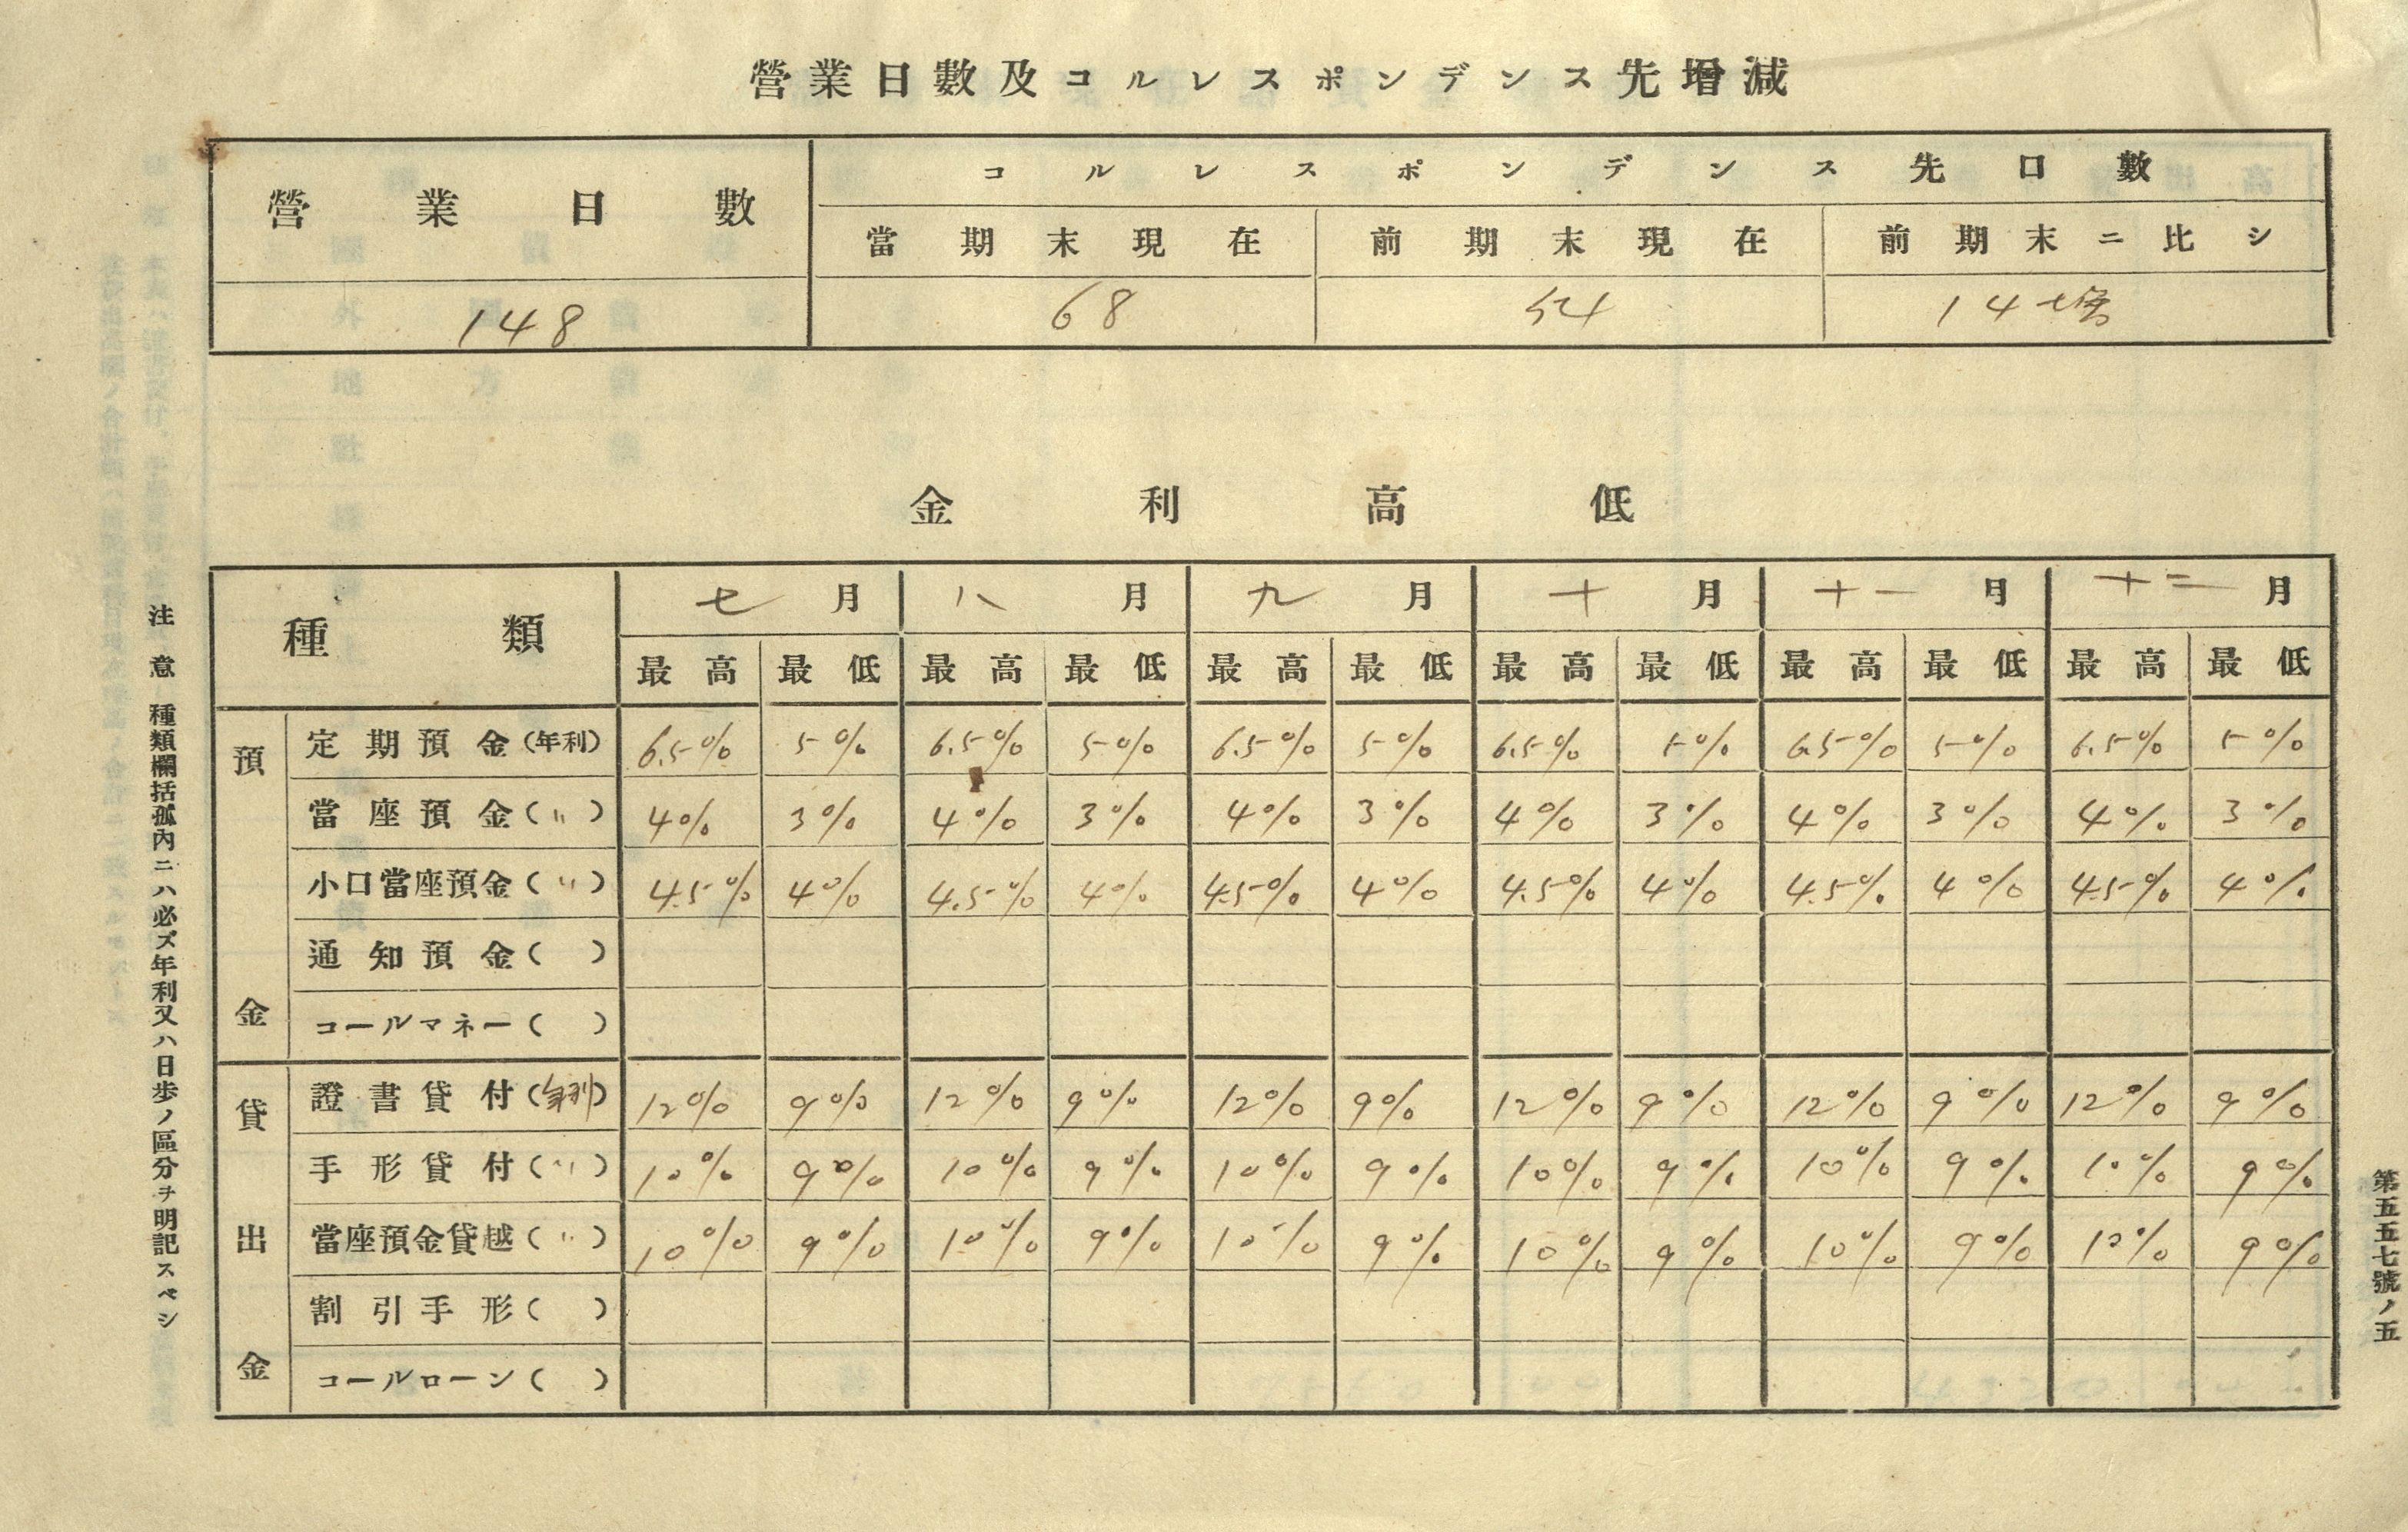 營業日數及コルレスポンデンス先增減
營業日數 コルレスポンデンス先口數
當期末現在 前期末現在 前期末ニ比シ
148 68 54 14増
金利高低
種類 七月 八月 九月 十月 十一月 十二月
最高 最低 最高 最低 最高 最低 最高 最低 最高 最低 最高 最低
預金
定期預金(年利) 6.5% 5% 6.5% 5% 6.5% 5% 6.5% 5% 6.5% 5% 6.5% 5%
當座預金(〃) 4% 3% 4% 3% 4% 3% 4% 3% 4% 3% 4% 3%
小口當座預金(〃) 4.5% 4% 4.5% 4% 4.5% 4% 4.5% 4% 4.5% 4% 4.5% 4%
通知預金( )
コールマネー( )
貸出金
證書貸付(年利) 12% 9% 12% 9% 12% 9% 12% 9% 12% 9% 12% 9%
手形貸付(〃) 10% 9% 10% 9% 10% 9% 10% 9% 10% 9% 10% 9%
當座預金貸越(〃) 10% 9% 10% 9% 10% 9% 10% 9% 10% 9% 10% 9%
割引手形( )
コールローン( )
注意 種類欄括孤內ニハ必ズ年利又ハ日歩ノ區分ヲ明記スベシ
第五五七號ノ五